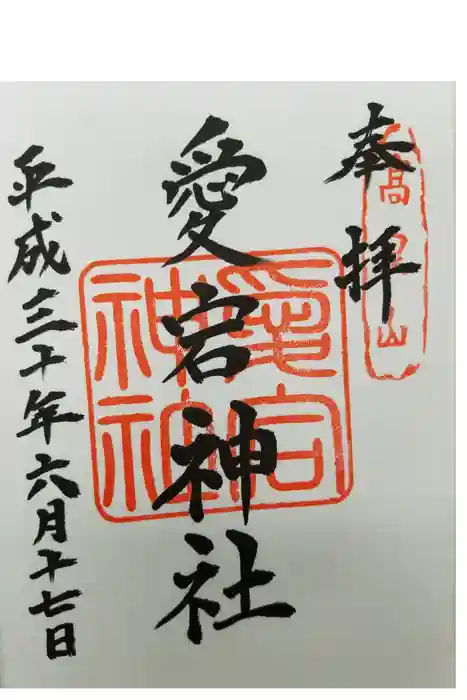 奉拝
愛宕神社
平成三十年六月十七日
愛宕神社